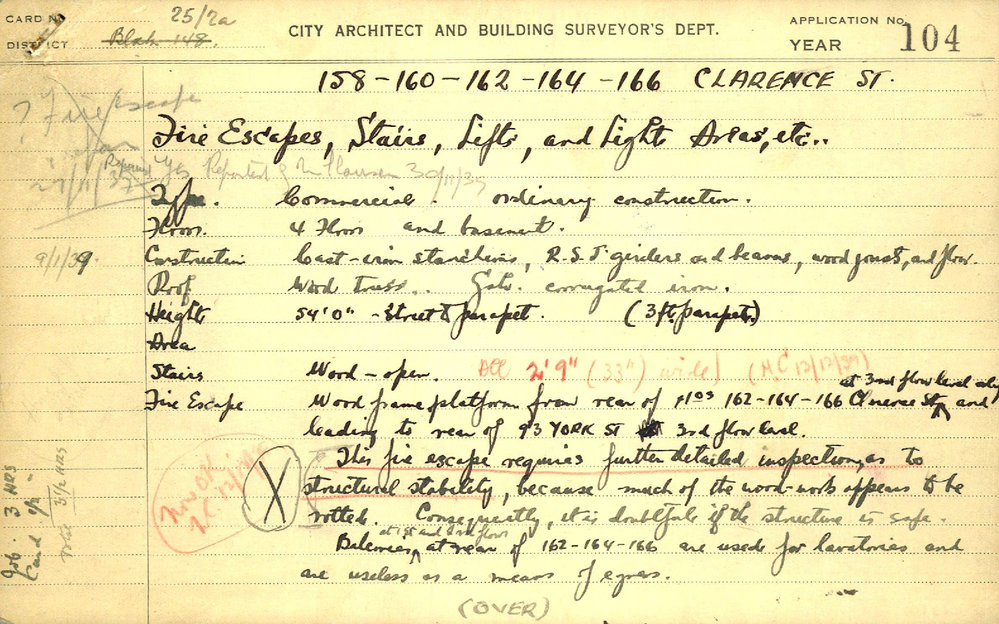 CARD No 25/2a
DISTRICT Block 148.
CITY ARCHITECT AND BUILDING SURVEYOR'S DEPT.
APPLICATION No.
YEAR
104
158-160-162-164-166 CLARENCE ST.
? Fire Escape
Fire Escapes, Stairs, Lifts, and Light Areas, etc..
27/11/37
Yes Reported 30/11/37
Type. Commercial. ordinary construction.
Floors. 4 Floors and basement.
9/1/39
Construction Cast-iron stanchions, R.S.J girders and beams, wood joists, and floor.
Roof Wood truss.. Galv. corrugated iron.
Height 54'0" - Street to parapet. (3ft. parapet.)
Area
Stairs Wood - open. All 2'9" (33") wide)
Fire Escape Wood frame platform from rear of Nos 162-164-166 Clarence St, at 3rd floor level only and
leading to rear of 93 YORK ST 3rd floor level.
This fire escape requires further detailed inspection, as to
structural stability, because much of the wood-work appears to be
rotted. Consequently, it is doubtful if the structure is safe.
Balconies, at 1st and 2nd floors at rear of 162-164-166 are used for lavatories and
are useless as a means of egress.
(OVER)
X
Now OK
Job. 3 HRS
Card 1/2 "
Total 3 1/2 HRS